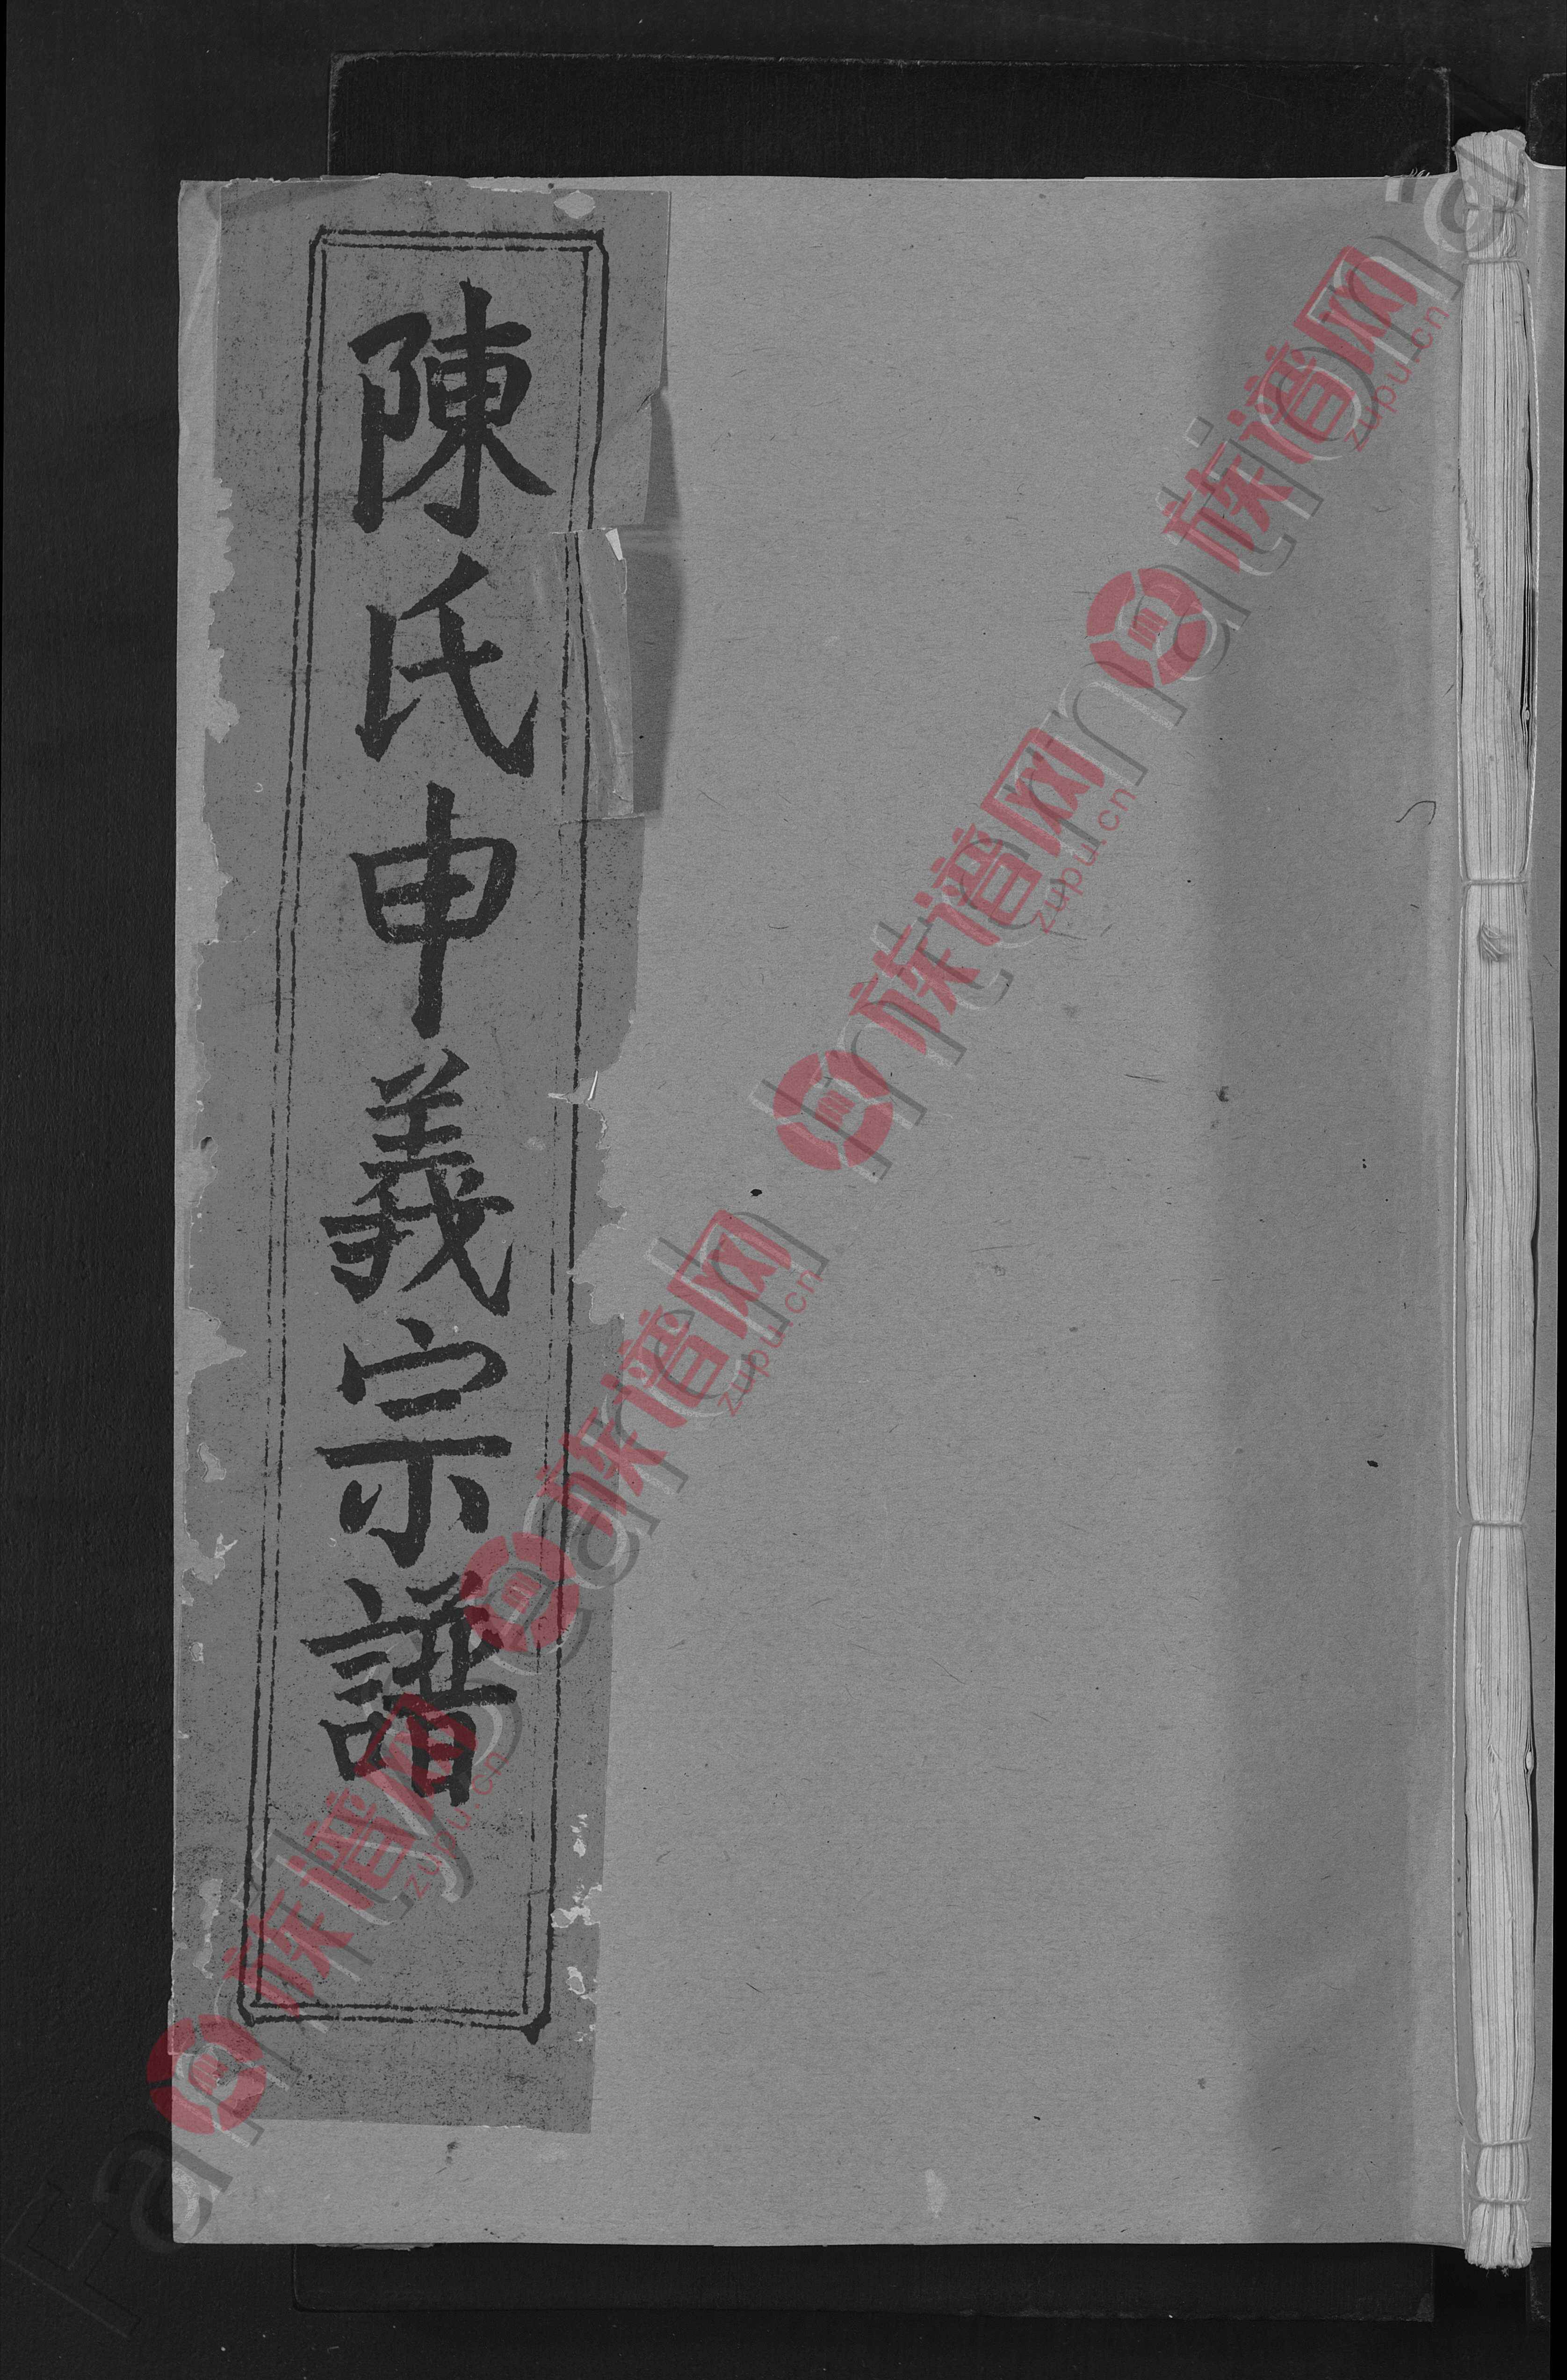 陳氏申義宗譜
族谱网 zupu.cn
族谱网 zupu.cn
族谱网 zupu.cn
族谱网 zupu.cn
FamilySearch International